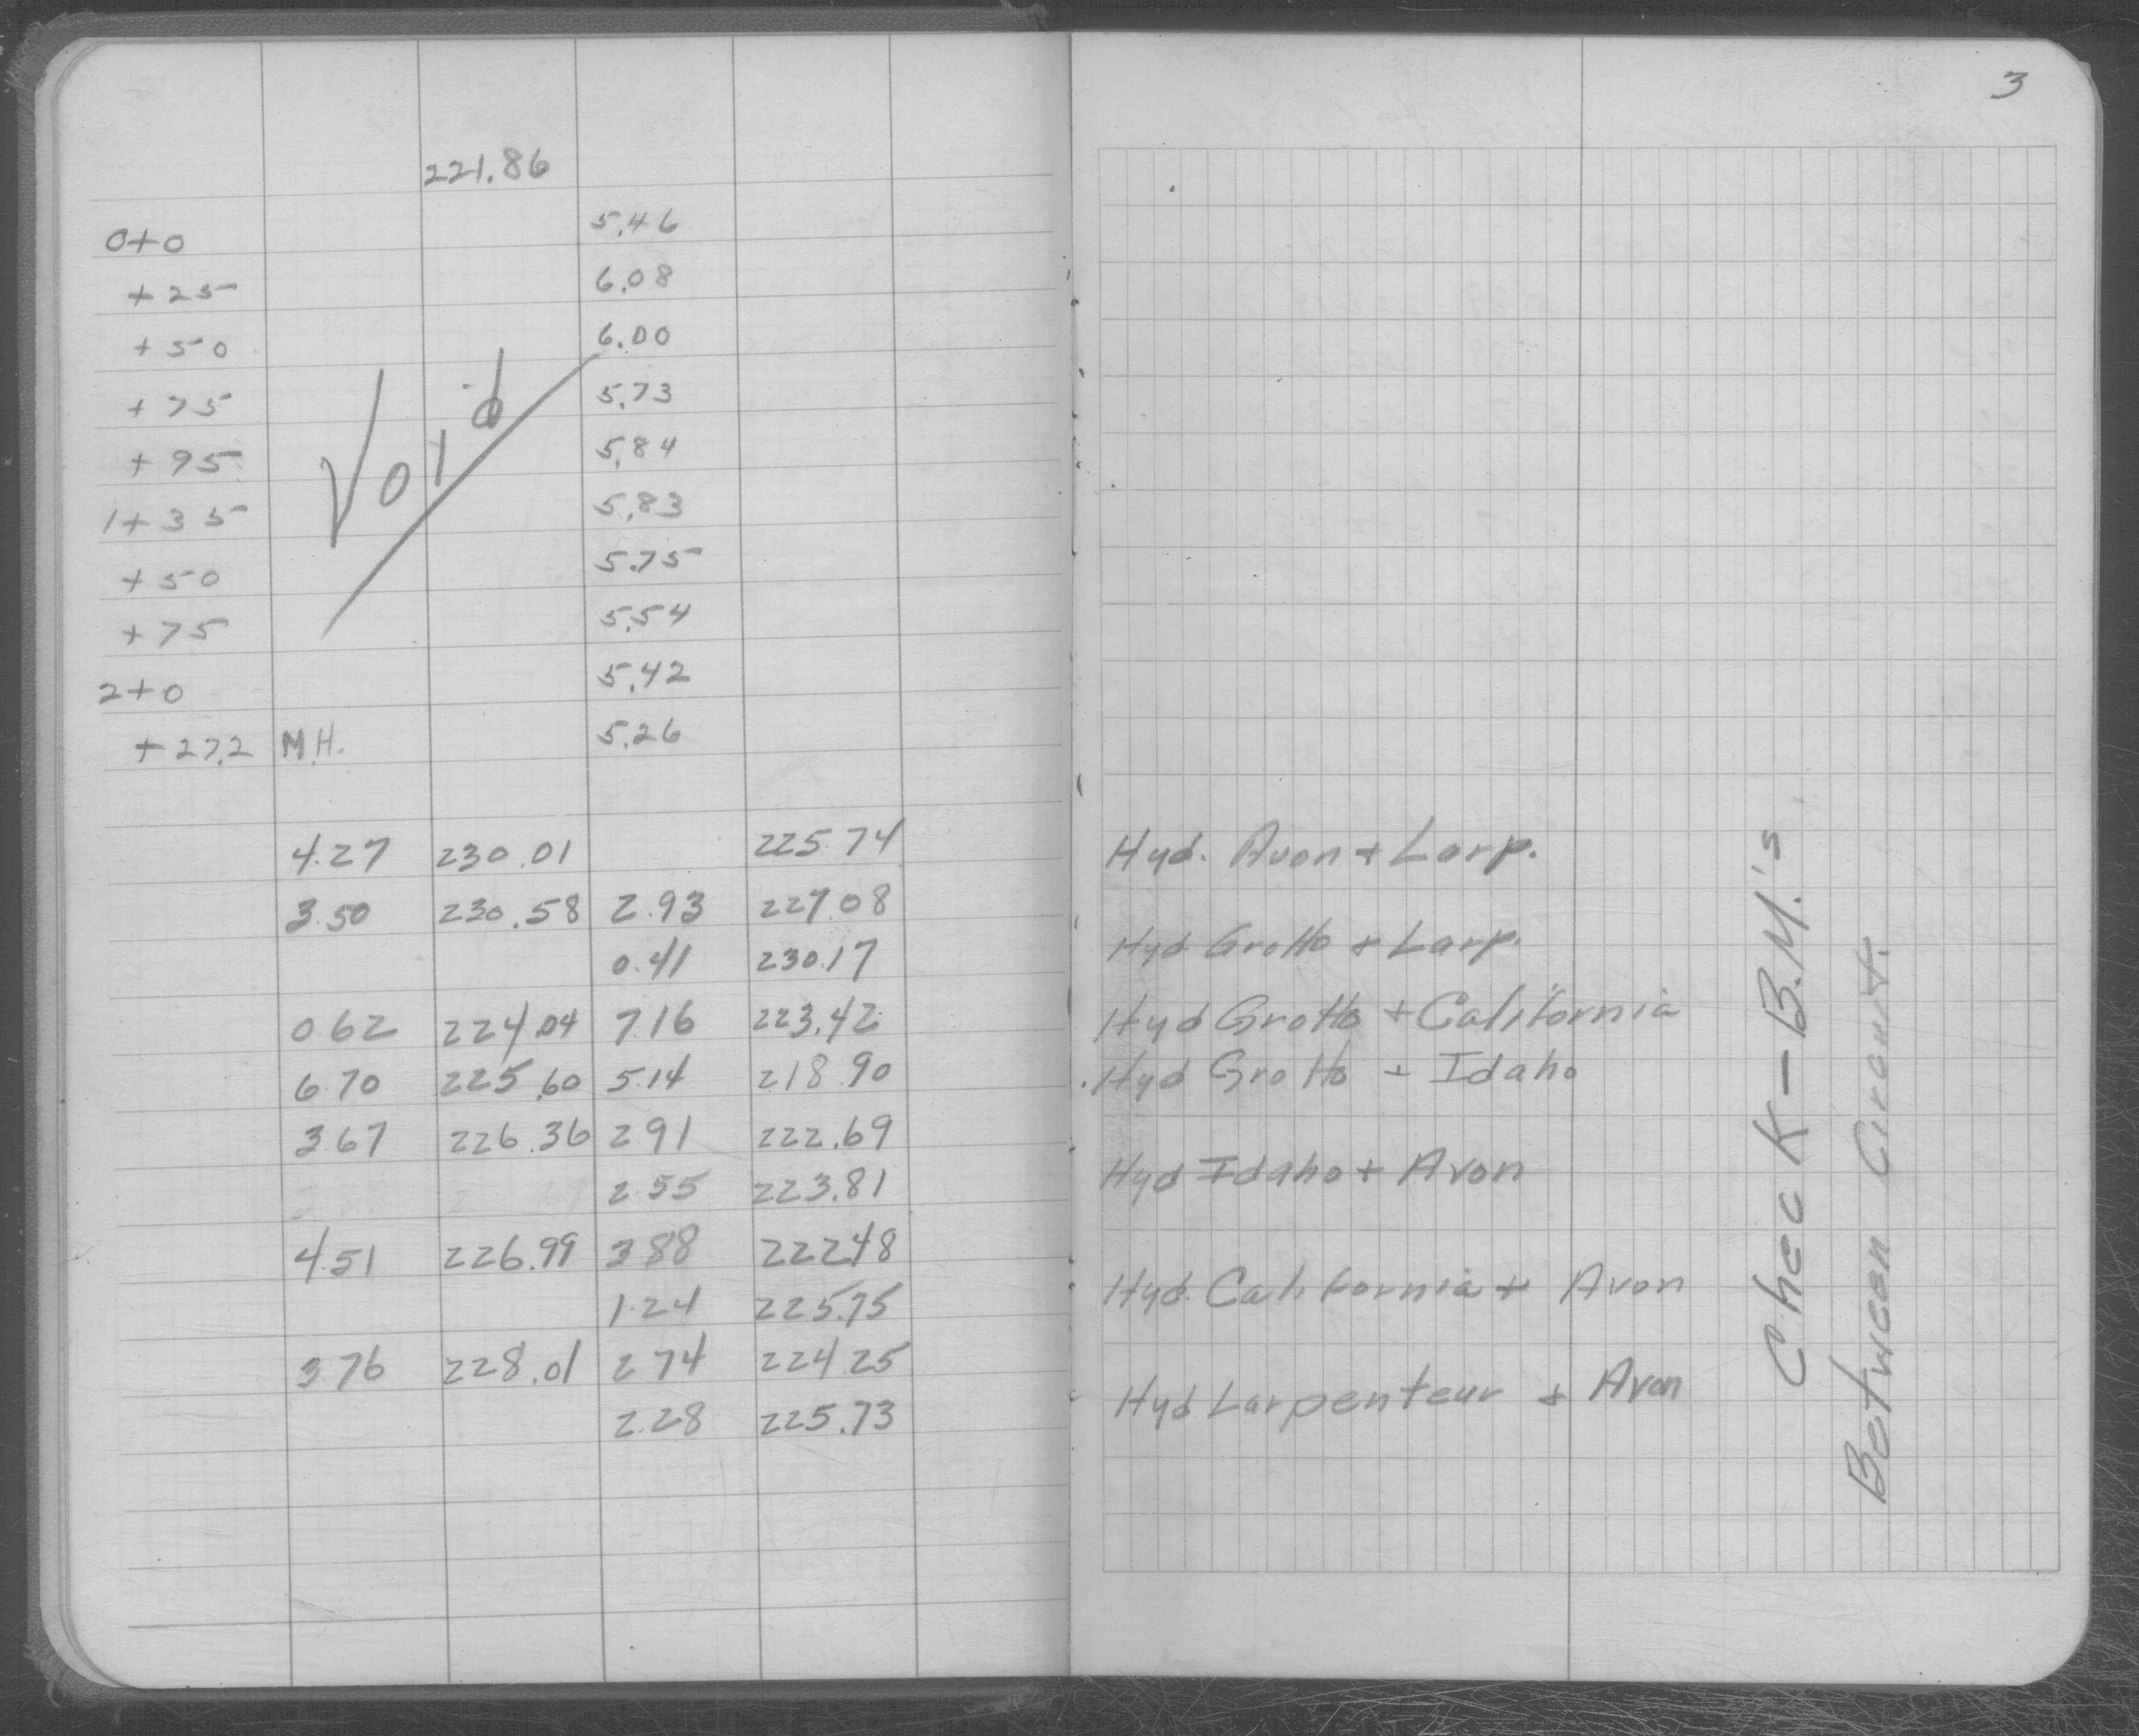 3
221.86
0+0 5.46
+25 6.08
+50 6.00
+75 5.73
+95 5.84
1+35 5.83
+50 5.75
+75 5.54
2+0 5.42
+27.2 M.H. 5.26
Void
4.27 230.01 225.74 Hyd. Avon + Larp.
3.50 230.58 2.93 227.08
0.41 230.17 Hyd Grotto + Larp.
0.62 224.04 7.16 223.42 Hyd Grotto + California
6.70 225.60 5.14 218.90 Hyd Grotto + Idaho
3.67 226.36 2.91 222.69
2.55 223.81 Hyd Idaho + Avon
4.51 226.99 3.88 222.48
1.24 225.75 Hyd. California + Avon
3.76 228.01 2.74 224.25
2.28 225.73 Hyd Larpenteur + Avon
Check - B.M.'s
Between Circuit.